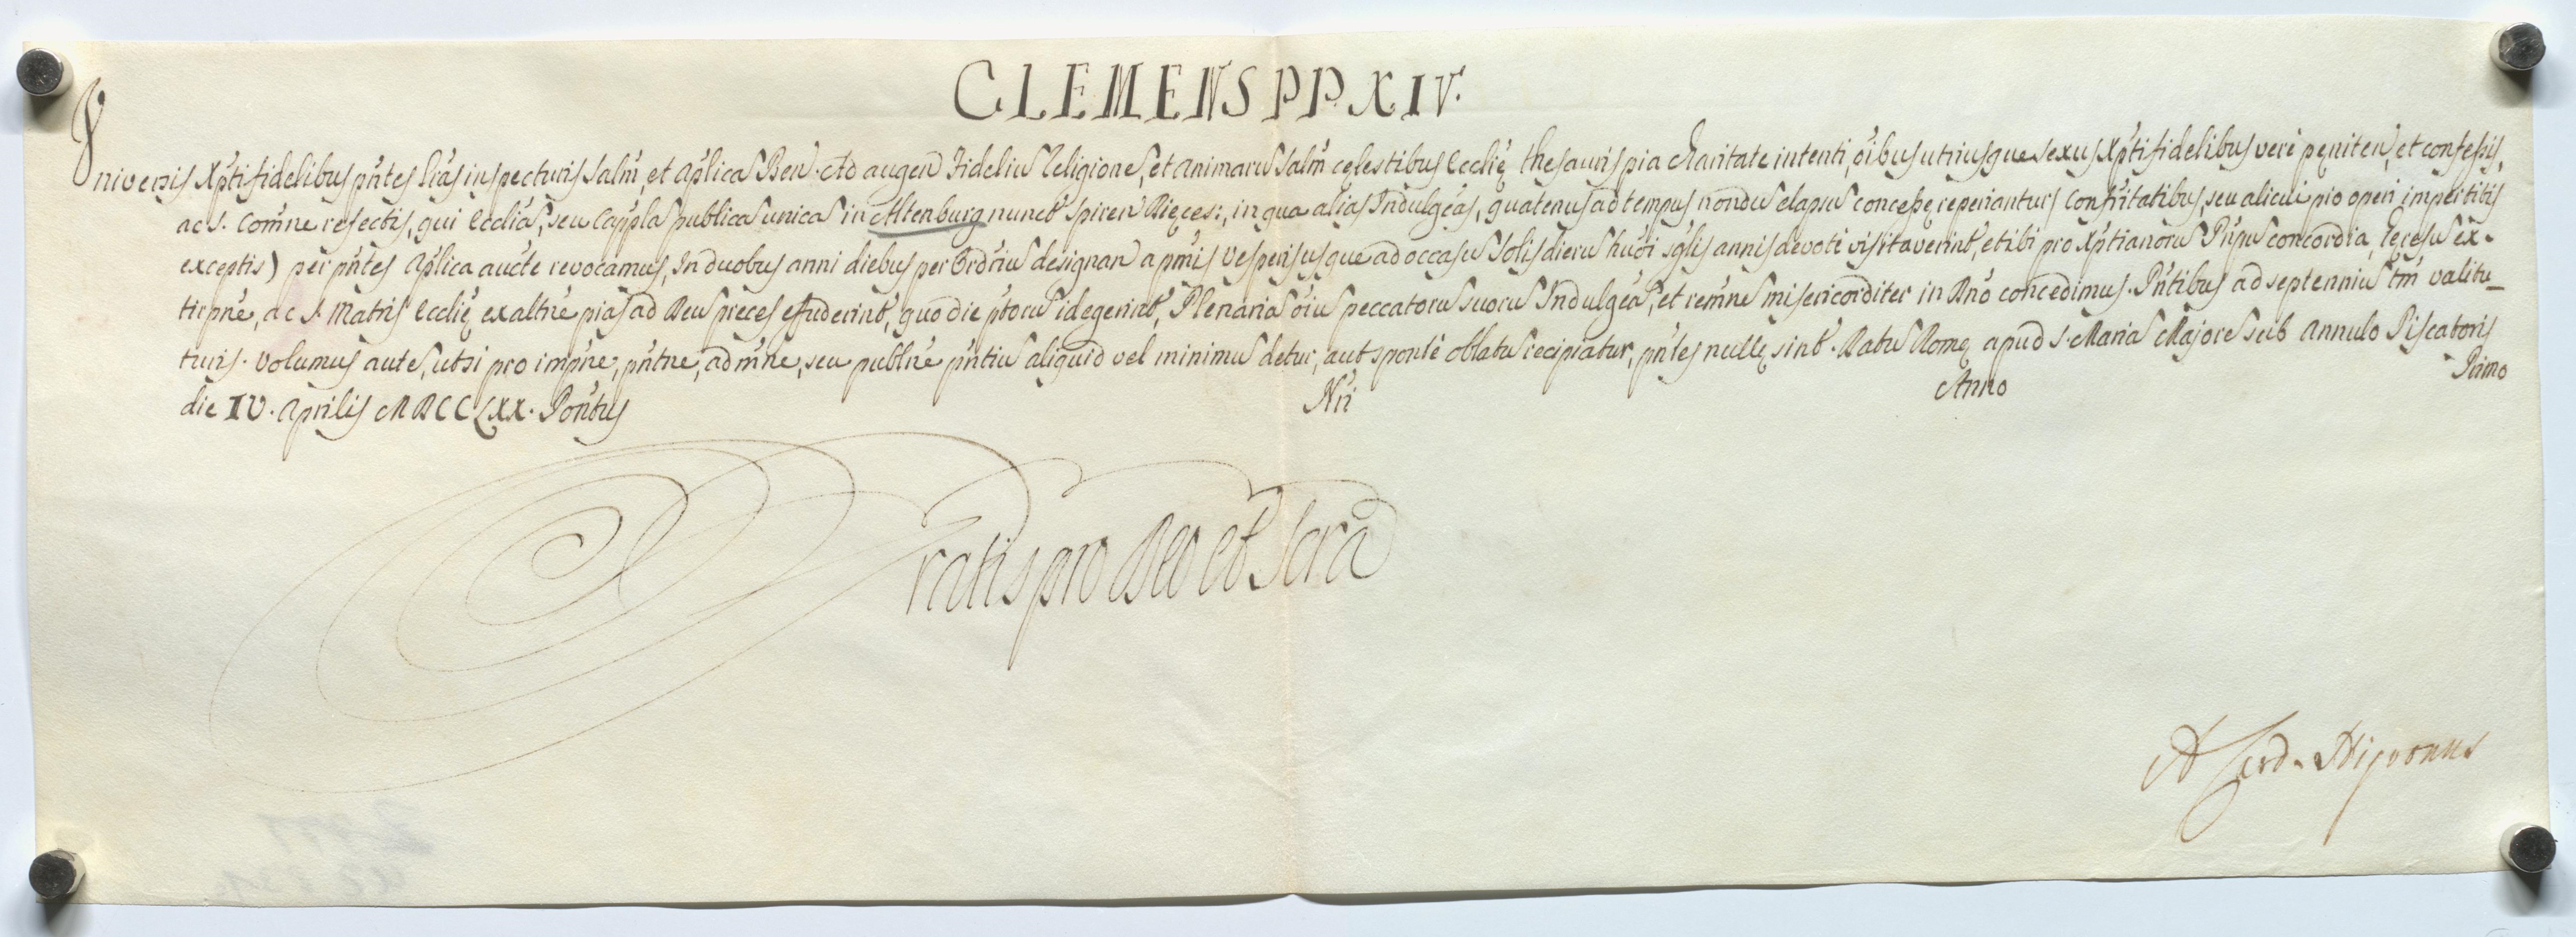 CLEMENS PP. XIV.
Universis Xpti fidelibus pñtes Lrãs inspecturis Salm̃, et Aplica Ben. Ad augen Fideliu Religione, et animaru Salm̃ celestibus Ecclię thesauris pia Charitate intenti, oibus utriusque sexus Xpti fidelibus verè pęniten, et confessis,
ac S. Com̃ne refectis, qui Ecclia, seu Cappla publica unica in Altenburg nunct Spiren Dięces:, in qua alias Indulgeas, quatenus ad tempus nondu elapsu concessę reperiantur) Confrtatibus, seu alicui pio operi impertitis
exceptis) per pñtes Aplica aucte revocamus, In duobus anni diebus per Ordriu designan a prm̃is Vesperis usque ad occasu Solis dieru hũoi sglis annis devotè visitaverint, et ibi pro Xptianoru Pripu concordia, Heresu ex-
tirpñe, ac S. Matris Ecclię exaltñe pias ad Deu preces effuderint, quo die ptoru id egerint, Plenaria oiu peccatoru suoru Indulgea, et rem̃ne misericorditer in Dño concedimus. Pñtibus ad septenniu tm̃ valitu-
turis. Volumus aute, ut si pro impñe, pñtne, adm̃ne, seu publñe pñtiu aliquid vel minimu detur, aut spontè oblatu recipiatur, pñtes nullę sint. Datu Romę apud S. Maria Majore sub Annulo Piscatoris
die IV. Aprilis MDCCLXX. Pontus Nri Anno Primo
Gratis pro Deo et Scra
A Card. Nigronus